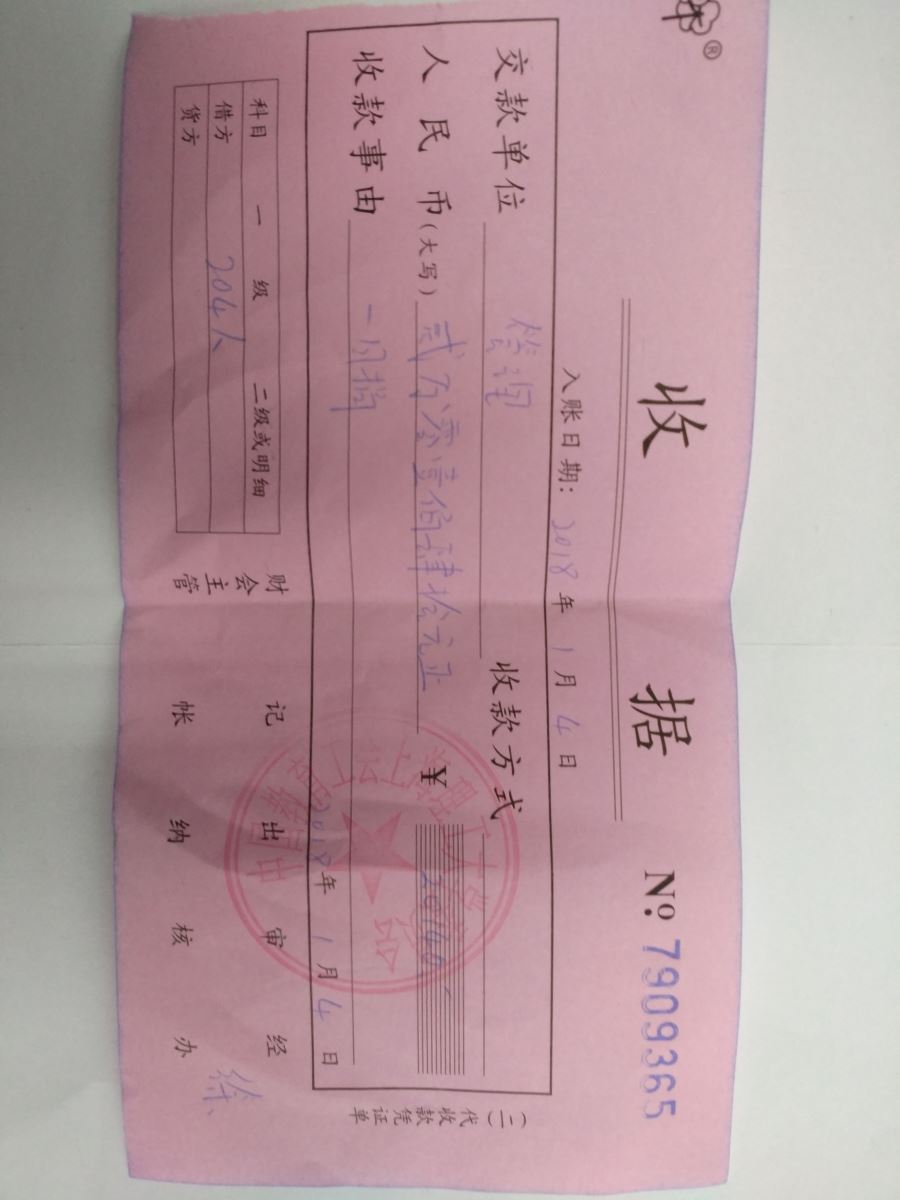 ®
收 据
№ 7909365
入账日期：2018年1月4日
交款单位 收款方式
人民币（大写）贰万零壹佰肆拾元正 ¥ 20140
收款事由
2018年1月4日
（二）代收款凭证单
科目 一级 二级或明细
借方 204人
贷方
财会主管
记帐
出纳
审核
经办 徐